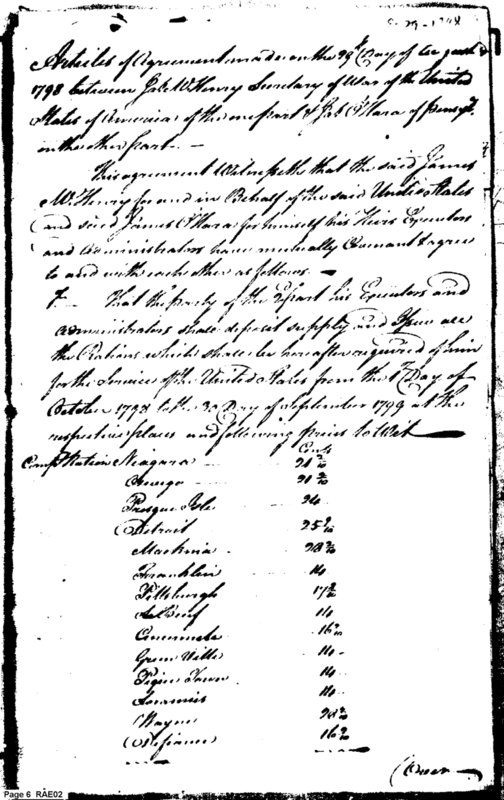 Articles of Agreement made on the 29th Day of August
1798 between Jas. McHenry Secretary of War of the United
States of America of the one part & Jas. O'Hara of
on the other part.—
This agreement Witnesseth that the said James
McHenry for and in Behalf of the said United States
and said James O'Hara for himself his Heirs Executors
and Administrators have mutually Covenant & agree
to and with each other as follows.—
1.— That the party of the 2d part his Executors and
administrators shall deposit supply and Issue all
the Rations which shall be hereafter required of him
for the Service of the United States from the 1 Day of
October 1798 to the 30 Day of September 1799 at the
respective places and following prices to Wit
Cents
Niagara
Oswego
Presque Isle
Detroit
Mackina
Franklin 14
Pittsburgh
LeBeuf 14
Cincinnati
Green Ville 14
Pique Town 14
Loramies 14
Wayne
Defiance
(Over
Page 6 RAE02